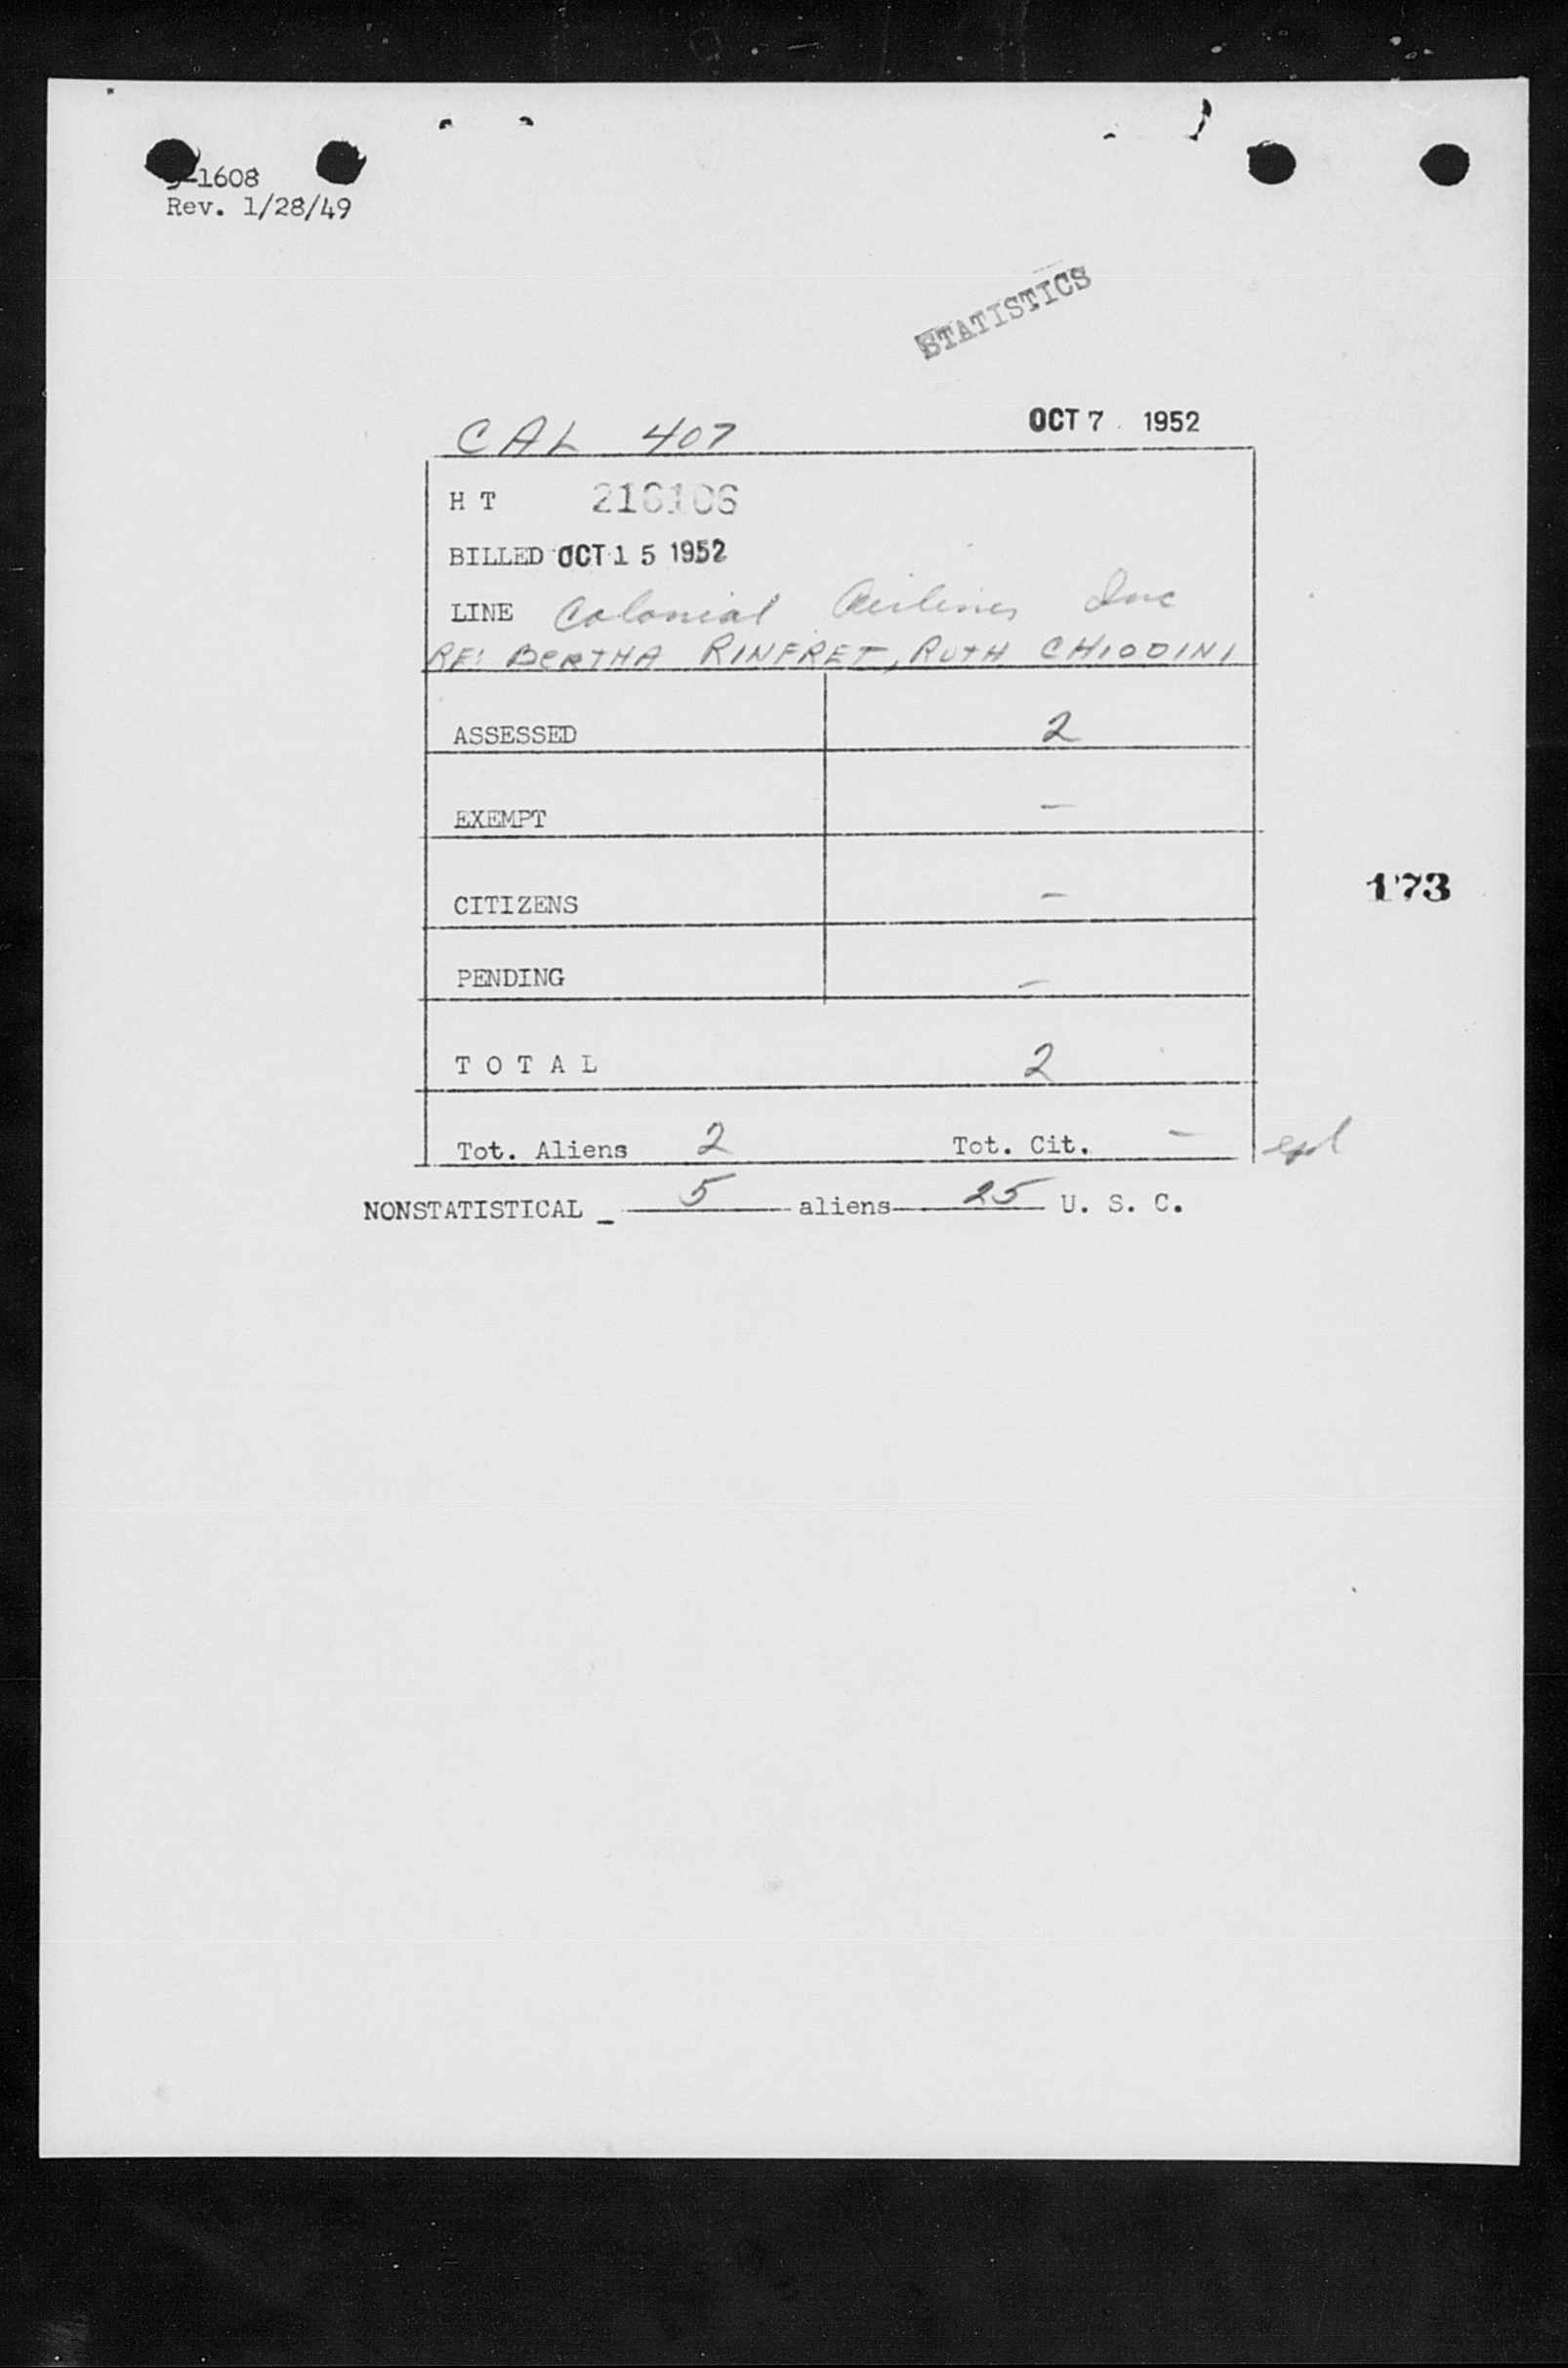 -1608
Rev. 1/28/49
STATISTICS
CAL 407 OCT 7 1952
H T 210106
BILLED OCT 15 1952
LINE Colonial Airlines Inc
RE: BERTHA RINFRET, RUTH CHIODINI
ASSESSED 2
EXEMPT –
CITIZENS –
173
PENDING –
T O T A L 2
Tot. Aliens 2 Tot. Cit. –
NONSTATISTICAL _ 5 aliens 25 U. S. C.